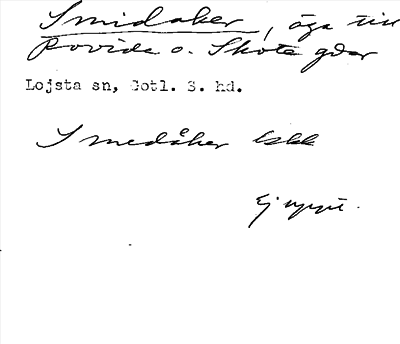 Smidåker, äga till
Rovide o. Skote gdar
Lojsta sn, Gotl. S. hd.
Smedåker
Ej uppt.